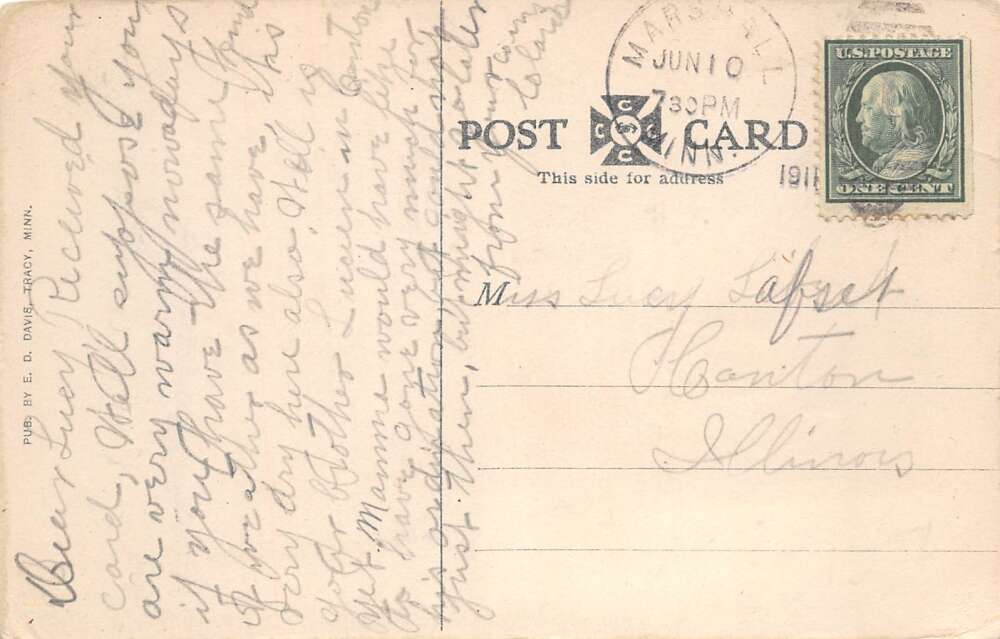 Dear Lucy Received your
card, Well suppose you
are very warm nowadays
if you have the same kind
of weather as we have this
very dry here also. Well is
your brother Lucien in Canton
yet. Mamma would have liked
to have gone very much for
his graduation, but could not
just then, but might go later
from your
PUB. BY E. D. DAVIS, TRACY, MINN.
POST CARD
This side for address
MARSHALL
JUN 10
730PM
MINN.
1911
U.S. POSTAGE
ONE CENT
Miss Lucy
Canton
Illinois